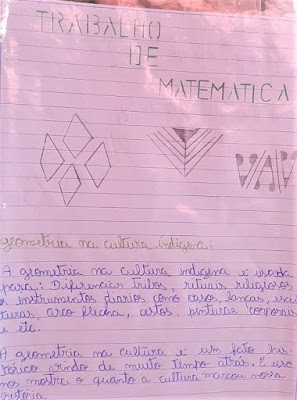 TRABALHO
DE
MATEMATICA
geometria na cultura indigena:
A geometria na cultura indigena é usada
para: Diferenciar tribos, rituais religiosos
e instrumentos diarios como casos, lancas, escul
turas, arco flecha, cestos, pinturas corporais
e etc.
A geometria na cultura e um fato his
tórico vindo de muito tempo atrás. E isso
nos mostra o quanto a cultura marcou nossa
história.